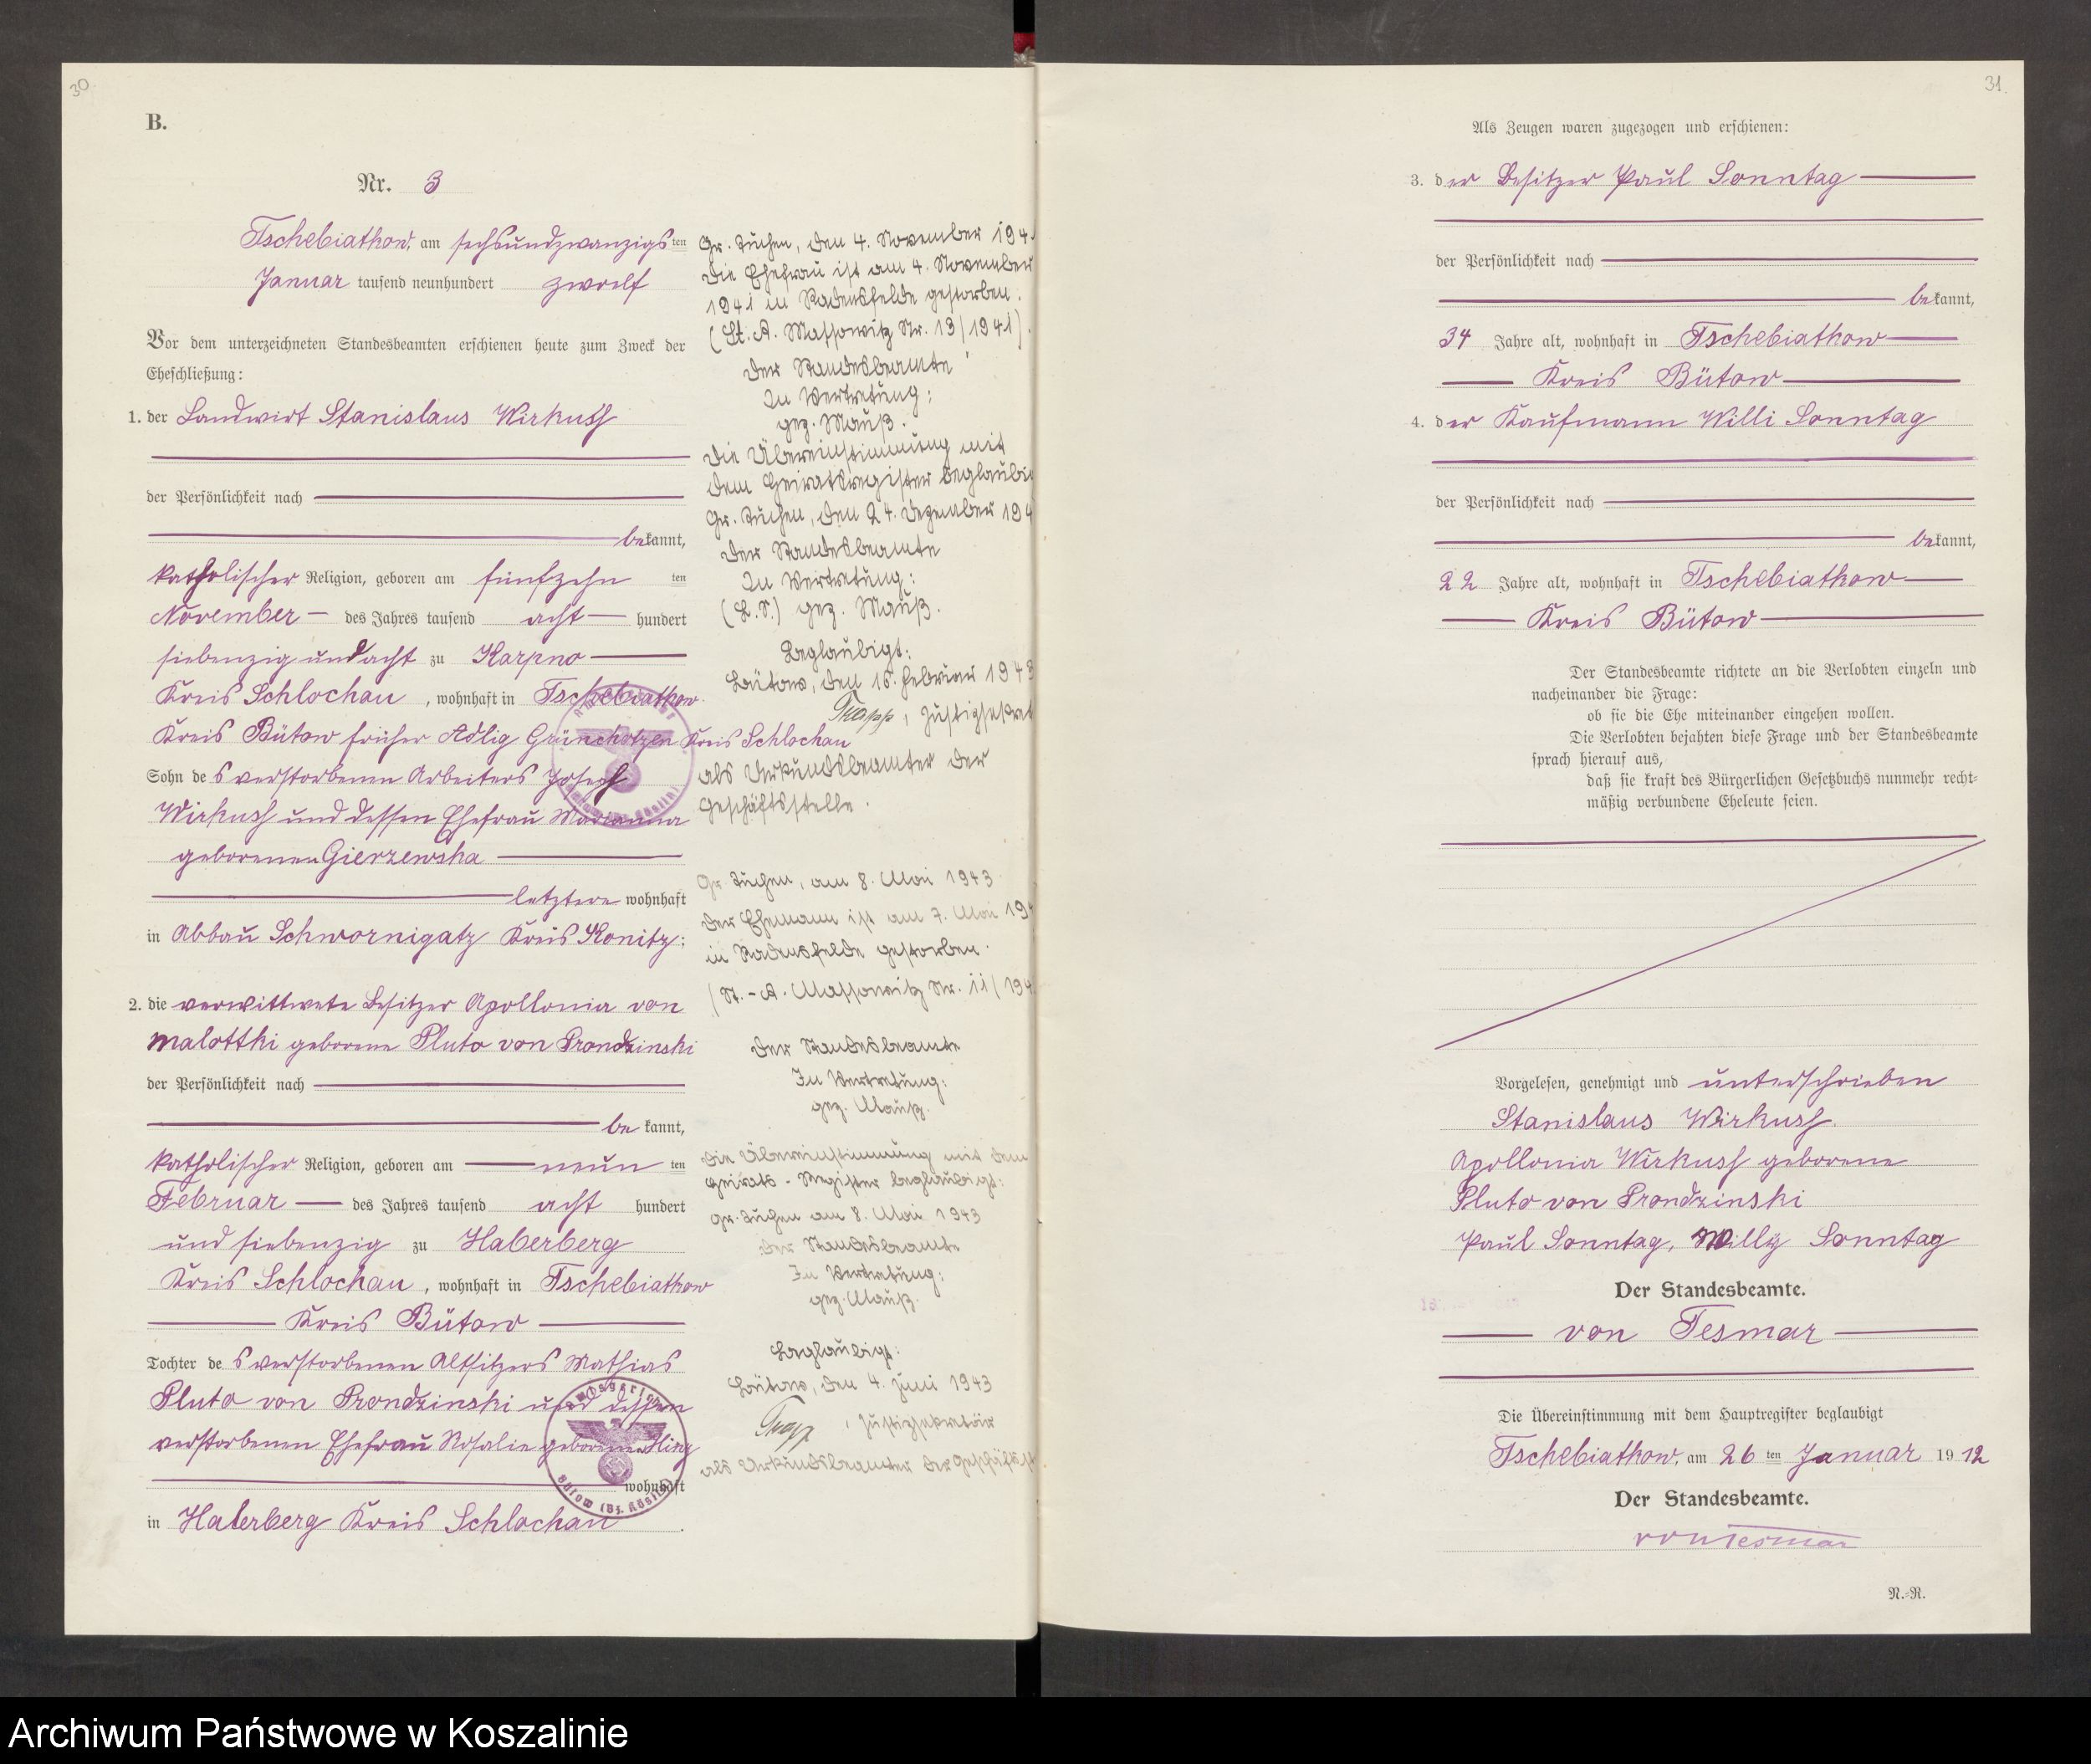 30
B.
Nr. 3
Tschebiatkow, am sechsundzwanzigsten
Januar tausend neunhundert zwoelf
Vor dem unterzeichneten Standesbeamten erschienen heute zum Zweck der
Eheschließung:
1. der Landwirt Stanislaus Wirkuss
der Persönlichkeit nach
bekannt,
katholischer Religion, geboren am fünfzehn ten
November des Jahres tausend acht hundert
siebenzig und acht zu Karpno
Kreis Schlochau, wohnhaft in Tschebiatkow
Kreis Bütow früher Adlig Grünchotzen Kreis Schlochau
Sohn des verstorbenen Arbeiters Joseph
Wirkuss und dessen Ehefrau Marianna
geborenen Gierzewska
letztere wohnhaft
in Abbau Schwornigatz Kreis Konitz;
2. die verwittwete Besitzer Apollonia von
Malottki geborene Pluto von Prondzinski
der Persönlichkeit nach
bekannt,
katholischer Religion, geboren am neun ten
Februar des Jahres tausend acht hundert
und siebenzig zu Haberberg
Kreis Schlochau, wohnhaft in Tschebiatkow
Kreis Bütow
Tochter des verstorbenen Altsitzers Mathias
Pluto von Prondzinski und dessen
verstorbenen Ehefrau Rosalie geborenen Hinz
wohnhaft
in Haberberg Kreis Schlochau.
Gr. Tuchen, den 4. November 194
Die Ehefrau ist am 4. November
1941 in Radensfelde gestorben.
(St. A. Massowitz Nr. 13/1941).
Der Standesbeamte
In Vertretung:
gez. Mauß.
Die Übereinstimmung mit
dem Heiratsregister beglaubi
Gr. Tuchen, den 24. Dezember 194
Der Standesbeamte
In Vertretung:
(L.S.) gez. Mauß.
Beglaubigt:
Bütow, den 16. Februar 1943
Trapp, Justizsekret
als Urkundsbeamter der
Geschäftsstelle.
Gr. Tuchen, am 8. Mai 1943
Der Ehemann ist am 7. Mai 194
in Radensfelde gestorben.
(St.-A. Massowitz Nr. 11/194
Der Standesbeamte
In Vertretung:
gez. Mauß.
Die Übereinstimmung mit dem
Heirats-Register beglaubigt:
Gr. Tuchen am 8. Mai 1943
Der Standesbeamte
In Vertretung:
gez. Mauß.
Beglaubigt:
Bütow, den 4. Juni 1943
Trapp, Justizsekretär
als Urkundsbeamter der Geschäftsst
31.
Als Zeugen waren zugezogen und erschienen:
3. der Besitzer Paul Sonntag
der Persönlichkeit nach
bekannt,
34 Jahre alt, wohnhaft in Tschebiatkow
Kreis Bütow
4. der Kaufmann Willi Sonntag
der Persönlichkeit nach
bekannt,
22 Jahre alt, wohnhaft in Tschebiatkow
Kreis Bütow
Der Standesbeamte richtete an die Verlobten einzeln und
nacheinander die Frage:
ob sie die Ehe miteinander eingehen wollen.
Die Verlobten bejahten diese Frage und der Standesbeamte
sprach hierauf aus,
daß sie kraft des Bürgerlichen Gesetzbuchs nunmehr recht-
mäßig verbundene Eheleute seien.
Vorgelesen, genehmigt und unterschrieben
Stanislaus Wirkuss.
Apollonia Wirkuss geborene
Pluto von Prondzinski
Paul Sonntag, Willy Sonntag
Der Standesbeamte.
von Tesmar
Die Übereinstimmung mit dem Hauptregister beglaubigt
Tschebiatkow, am 26 ten Januar 1912
Der Standesbeamte.
von Tesmar
N.=R.
Archiwum Państwowe w Koszalinie